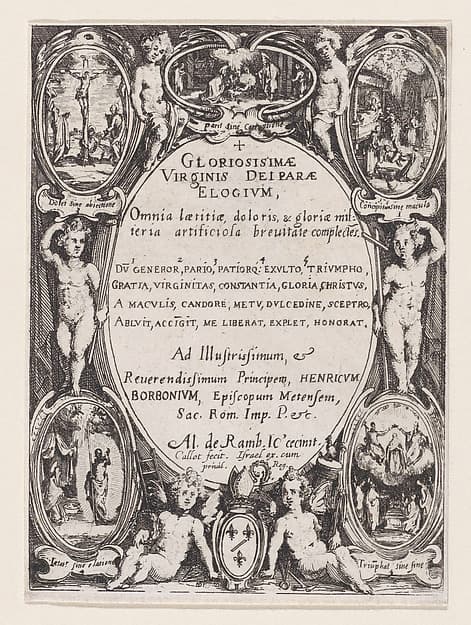 Parit sine Corruptione
Dolet sine abiectione
Concipitur sine macula
1
+
GLORIOSISIMÆ
VIRGINIS DEIPARÆ
ELOGIVM,
Omnia lætitiæ, doloris, & gloriæ mis-
teria artificiosa brevitate complectẽs.
DV̄ 1 GENEROR, 2 PARIO, 3 PATIORQ; 4 EXVLTO, 5 TRIVMPHO,
GRATIA, VIRGINITAS, CONSTANTIA, GLORIA, CHRISTVS,
A MACVLIS, CANDORE, METV, DVLCEDINE, SCEPTRO,
ABLVIT, ACCĪGIT, ME LIBERAT, EXPLET, HONORAT.
Ad Illustrissimum, &
Reverendissimum Principem, HENRICVM
BORBONIVM, Episcopum Metensem,
Sac. Rom. Imp. P. etc.
Al. de Ramb. IC.º cecinit.
Callot fecit. Israel ex. cum
privil. Reg.
Letat' sine elatione
Triūphat sine fine